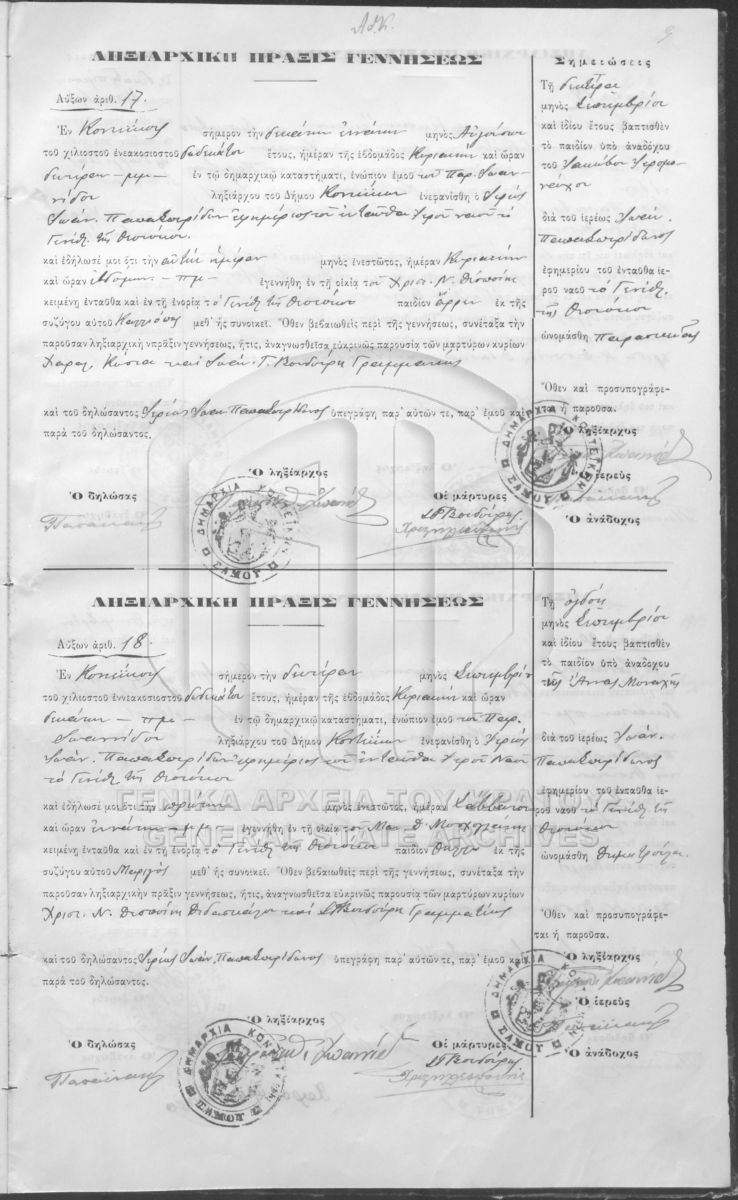 ΛΗΞΙΑΡΧΙΚΗ ΠΡΑΞΙΣ ΓΕΝΝΗΣΕΩΣ
Αὔξων ἀριθ. 17.
Ἐν σήμερον τὴν δεκάτην ἐννάτην μηνὸς Αὐγούστου
τοῦ χιλιοστοῦ ἐνεακοσιοστοῦ δωδεκάτου ἔτους, ἡμέραν τῆς ἑβδομάδος Κυριακὴν καὶ ὥραν
δευτέραν – μμ – ἐν τῷ δημαρχικῷ καταστήματι, ἐνώπιον ἐμοῦ τοῦ Παρ. Ἰωαν-
νίδου ληξιάρχου τοῦ Δήμου ἐνεφανίσθη ὁ Ἱερεὺς
Ἰωάν. Παπασπυρίδων ἐφημέριος τοῦ ἐνταῦθα Ἱεροῦ ναοῦ τὸ
Γενέθ. τῆς Θεοτόκου
καὶ ἐδήλωσέ μοι ὅτι τὴν αὐτὴν ἡμέραν μηνὸς ἐνεστῶτος, ἡμέραν Κυριακὴν
καὶ ὥραν ἑβδόμην – πμ – ἐγεννήθη ἐν τῇ οἰκίᾳ τοῦ Χριστ. Ν.
κειμένῃ ἐνταῦθα καὶ ἐν τῇ ἐνορίᾳ τὸ Γενέθ. τῆς Θεοτόκου παιδίον ἄρρεν ἐκ τῆς
συζύγου αὐτοῦ μεθ' ἧς συνοικεῖ. Ὅθεν βεβαιωθεὶς περὶ τῆς γεννήσεως, συνέταξα τὴν
παροῦσαν ληξιαρχικὴ νπρᾶξιν γεννήσεως, ἥτις, ἀναγνωσθεῖσα εὐκρινῶς παρουσίᾳ τῶν μαρτύρων κυρίων
καὶ Ἰωάν. Γ. Βουδούρη Γραμματέως
καὶ τοῦ δηλώσαντος Ἱερέως Ἰωάν. Παπασπυρίδωνος ὑπεγράφη παρ' αὐτῶν τε, παρ' ἐμοῦ καὶ
παρὰ τοῦ δηλώσαντος.
Ὁ ληξίαρχος
Ὁ δηλώσας
Οἱ μάρτυρες
ΔΗΜΑΡΧΙΑ
ΣΑΜΟΥ
Σημειώσεις
Τῇ δευτέρᾳ
μηνὸς Σεπτεμβρίου
καὶ ἰδίου ἔτους βαπτισθὲν
τὸ παιδίον ὑπὸ ἀναδόχου
τοῦ Ἰακώβου Ἱερομο-
νάχου
διὰ τοῦ ἱερέως Ἰωάν.
Παπασπυρίδωνος
ἐφημερίου τοῦ ἐνταῦθα ἱε-
ροῦ ναοῦ τὸ Γενέθ.
τῆς Θεοτόκου
ὠνομάσθη
Ὅθεν καὶ προσυπογράφε-
ται ἡ παροῦσα.
Ὁ ληξίαρχος
Ὁ ἱερεὺς
Ὁ ἀνάδοχος
ΛΗΞΙΑΡΧΙΚΗ ΠΡΑΞΙΣ ΓΕΝΝΗΣΕΩΣ
Αὔξων ἀριθ. 18.
Ἐν σήμερον τὴν δευτέραν μηνὸς Σεπτεμβρίου
τοῦ χιλιοστοῦ ἐννεακοσιοστοῦ δωδεκάτου ἔτους, ἡμέραν τῆς ἑβδομάδος Κυριακὴν καὶ ὥραν
δεκάτην – πμ – ἐν τῷ δημαρχικῷ καταστήματι, ἐνώπιον ἐμοῦ τοῦ Παρ.
Ἰωαννίδου ληξιάρχου τοῦ Δήμου ἐνεφανίσθη ὁ Ἱερεὺς
Ἰωάν. Παπασπυρίδων ἐφημέριος τοῦ ἐνταῦθα Ἱεροῦ Ναοῦ
τὸ Γενέθ. τῆς Θεοτόκου
καὶ ἐδήλωσέ μοι ὅτι τὴν πρώτην μηνὸς ἐνεστῶτος, ἡμέραν Σάββατον
καὶ ὥραν ἐννάτην – μμ ἐγεννήθη ἐν τῇ οἰκίᾳ τοῦ
κειμένῃ ἐνταῦθα καὶ ἐν τῇ ἐνορίᾳ τὸ Γενέθ. τῆς Θεοτόκου παιδίον θῆλυ ἐκ τῆς
συζύγου αὐτοῦ μεθ' ἧς συνοικεῖ. Ὅθεν βεβαιωθεὶς περὶ τῆς γεννήσεως, συνέταξα τὴν
παροῦσαν ληξιαρχικὴν πρᾶξιν γεννήσεως, ἥτις, ἀναγνωσθεῖσα εὐκρινῶς παρουσίᾳ τῶν μαρτύρων κυρίων
Χριστ. Ν. Διδασκάλου καὶ Βουδούρη Γραμματέως
καὶ τοῦ δηλώσαντος Ἱερέως Ἰωάν. Παπασπυρίδωνος ὑπεγράφη παρ' αὐτῶν τε, παρ' ἐμοῦ καὶ
παρὰ τοῦ δηλώσαντος.
Ὁ ληξίαρχος
Ὁ δηλώσας
Οἱ μάρτυρες
ΔΗΜΑΡΧΙΑ
ΣΑΜΟΥ
Τῇ ὀγδόῃ
μηνὸς Σεπτεμβρίου
καὶ ἰδίου ἔτους βαπτισθὲν
τὸ παιδίον ὑπὸ ἀναδόχου
τῆς Ἄννας Μοναχῆς
διὰ τοῦ ἱερέως Ἰωάν.
Παπασπυρίδωνος
ἐφημερίου τοῦ ἐνταῦθα ἱε-
ροῦ ναοῦ τὸ Γενέθ. τῆς
Θεοτόκου
ὠνομάσθη
Ὅθεν καὶ προσυπογράφε-
ται ἡ παροῦσα.
Ὁ ληξίαρχος
Ὁ ἱερεὺς
Ὁ ἀνάδοχος
ΓΕΝΙΚΑ ΑΡΧΕΙΑ ΤΟΥ ΚΡΑΤΟΥΣ
GENERAL STATE ARCHIVES